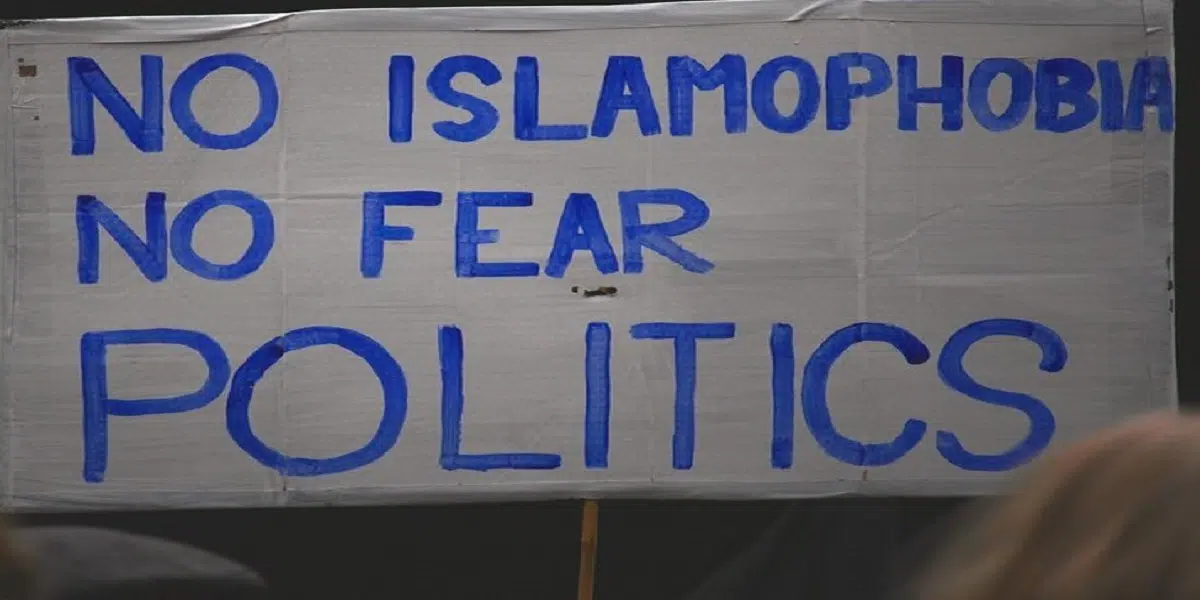 NO ISLAMOPHOBIA
NO FEAR
POLITICS